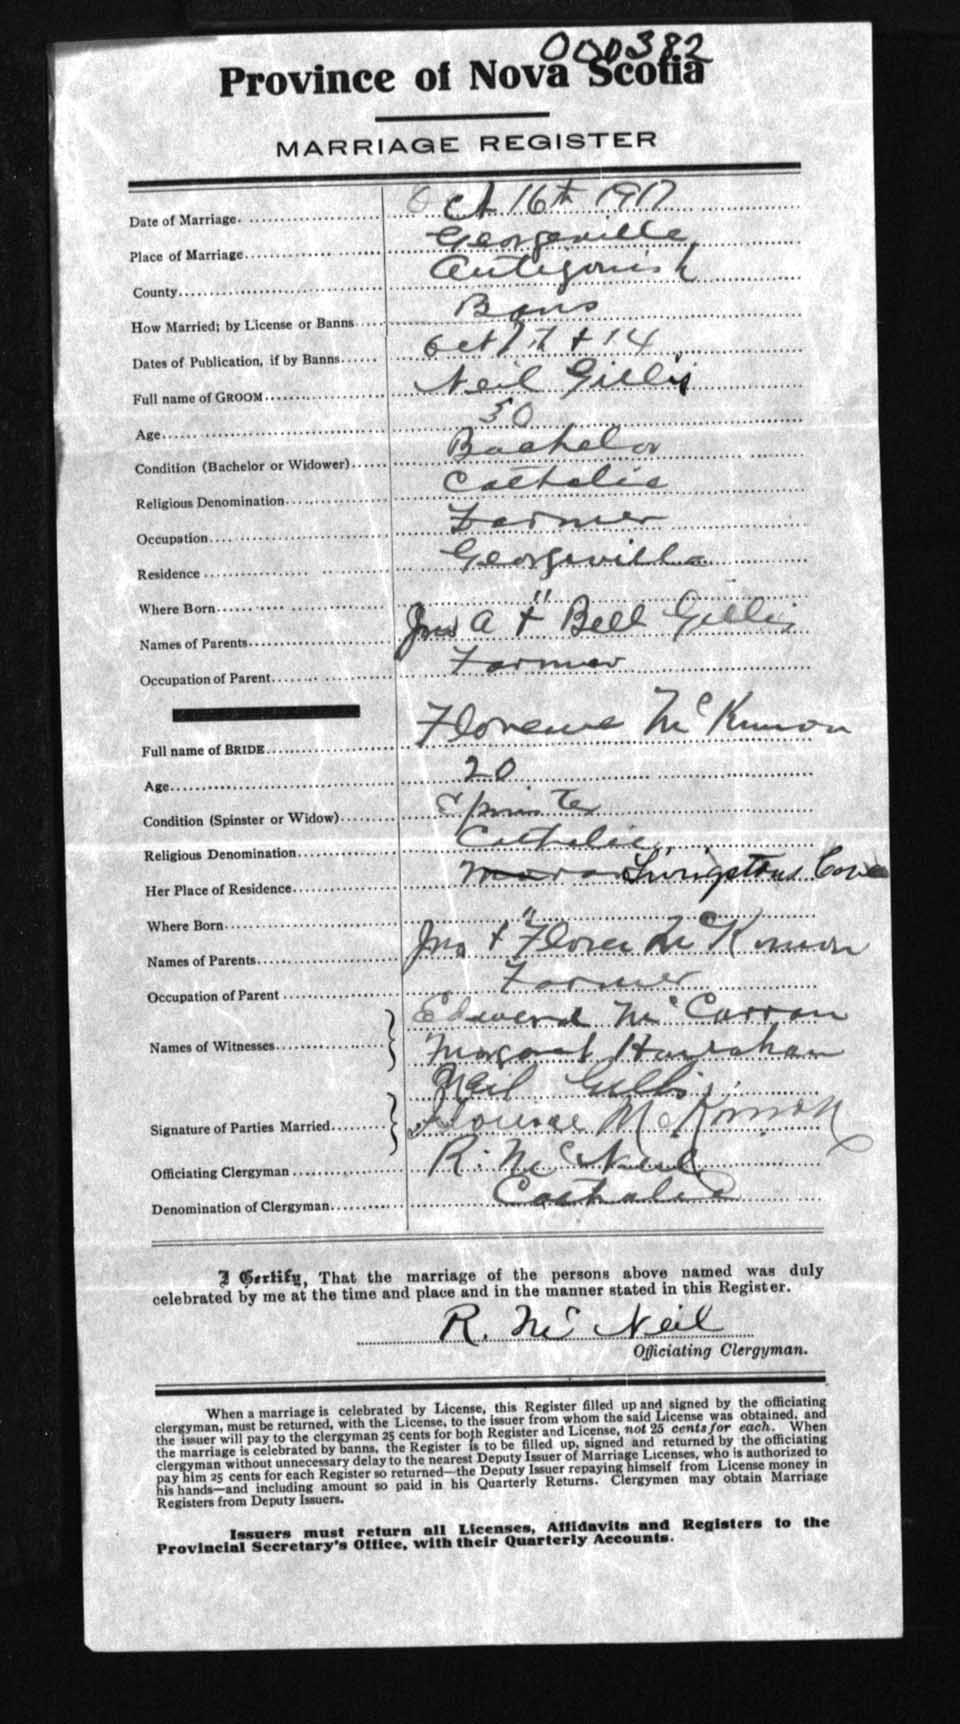 000382
Province of Nova Scotia
MARRIAGE REGISTER
Date of Marriage. Oct 16th 1917
Place of Marriage Georgeville
County Antigonish
How Married; by License or Banns Bans
Dates of Publication, if by Banns Oct 7th + 14
Full name of GROOM Neil Gillis
Age 30
Condition (Bachelor or Widower) Bachelor
Religious Denomination Catholic
Occupation Farmer
Residence Georgeville
Where Born "
Names of Parents Jno A + Bell Gillis
Occupation of Parent Farmer
Full name of BRIDE Florence McKinnon
Age 20
Condition (Spinster or Widow) Spinster
Religious Denomination Catholic
Her Place of Residence Livingstons Cove
Where Born "
Names of Parents Jno + Flora McKinnon
Occupation of Parent Farmer
Names of Witnesses Edward McCarran
Margaret
Signature of Parties Married Neil Gillis
Florence McKinnon
Officiating Clergyman R. McNeil
Denomination of Clergyman Catholic
I Certify, That the marriage of the persons above named was duly
celebrated by me at the time and place and in the manner stated in this Register.
R. McNeil
Officiating Clergyman.
When a marriage is celebrated by License, this Register filled up and signed by the officiating
clergyman, must be returned, with the License, to the issuer from whom the said License was obtained, and
the issuer will pay to the clergyman 25 cents for both Register and License, not 25 cents for each. When
the marriage is celebrated by banns, the Register is to be filled up, signed and returned by the officiating
clergyman without unnecessary delay to the nearest Deputy Issuer of Marriage Licenses, who is authorized to
pay him 25 cents for each Register so returned—the Deputy Issuer repaying himself from License money in
his hands—and including amount so paid in his Quarterly Returns. Clergymen may obtain Marriage
Registers from Deputy Issuers.
Issuers must return all Licenses, Affidavits and Registers to the
Provincial Secretary's Office, with their Quarterly Accounts.